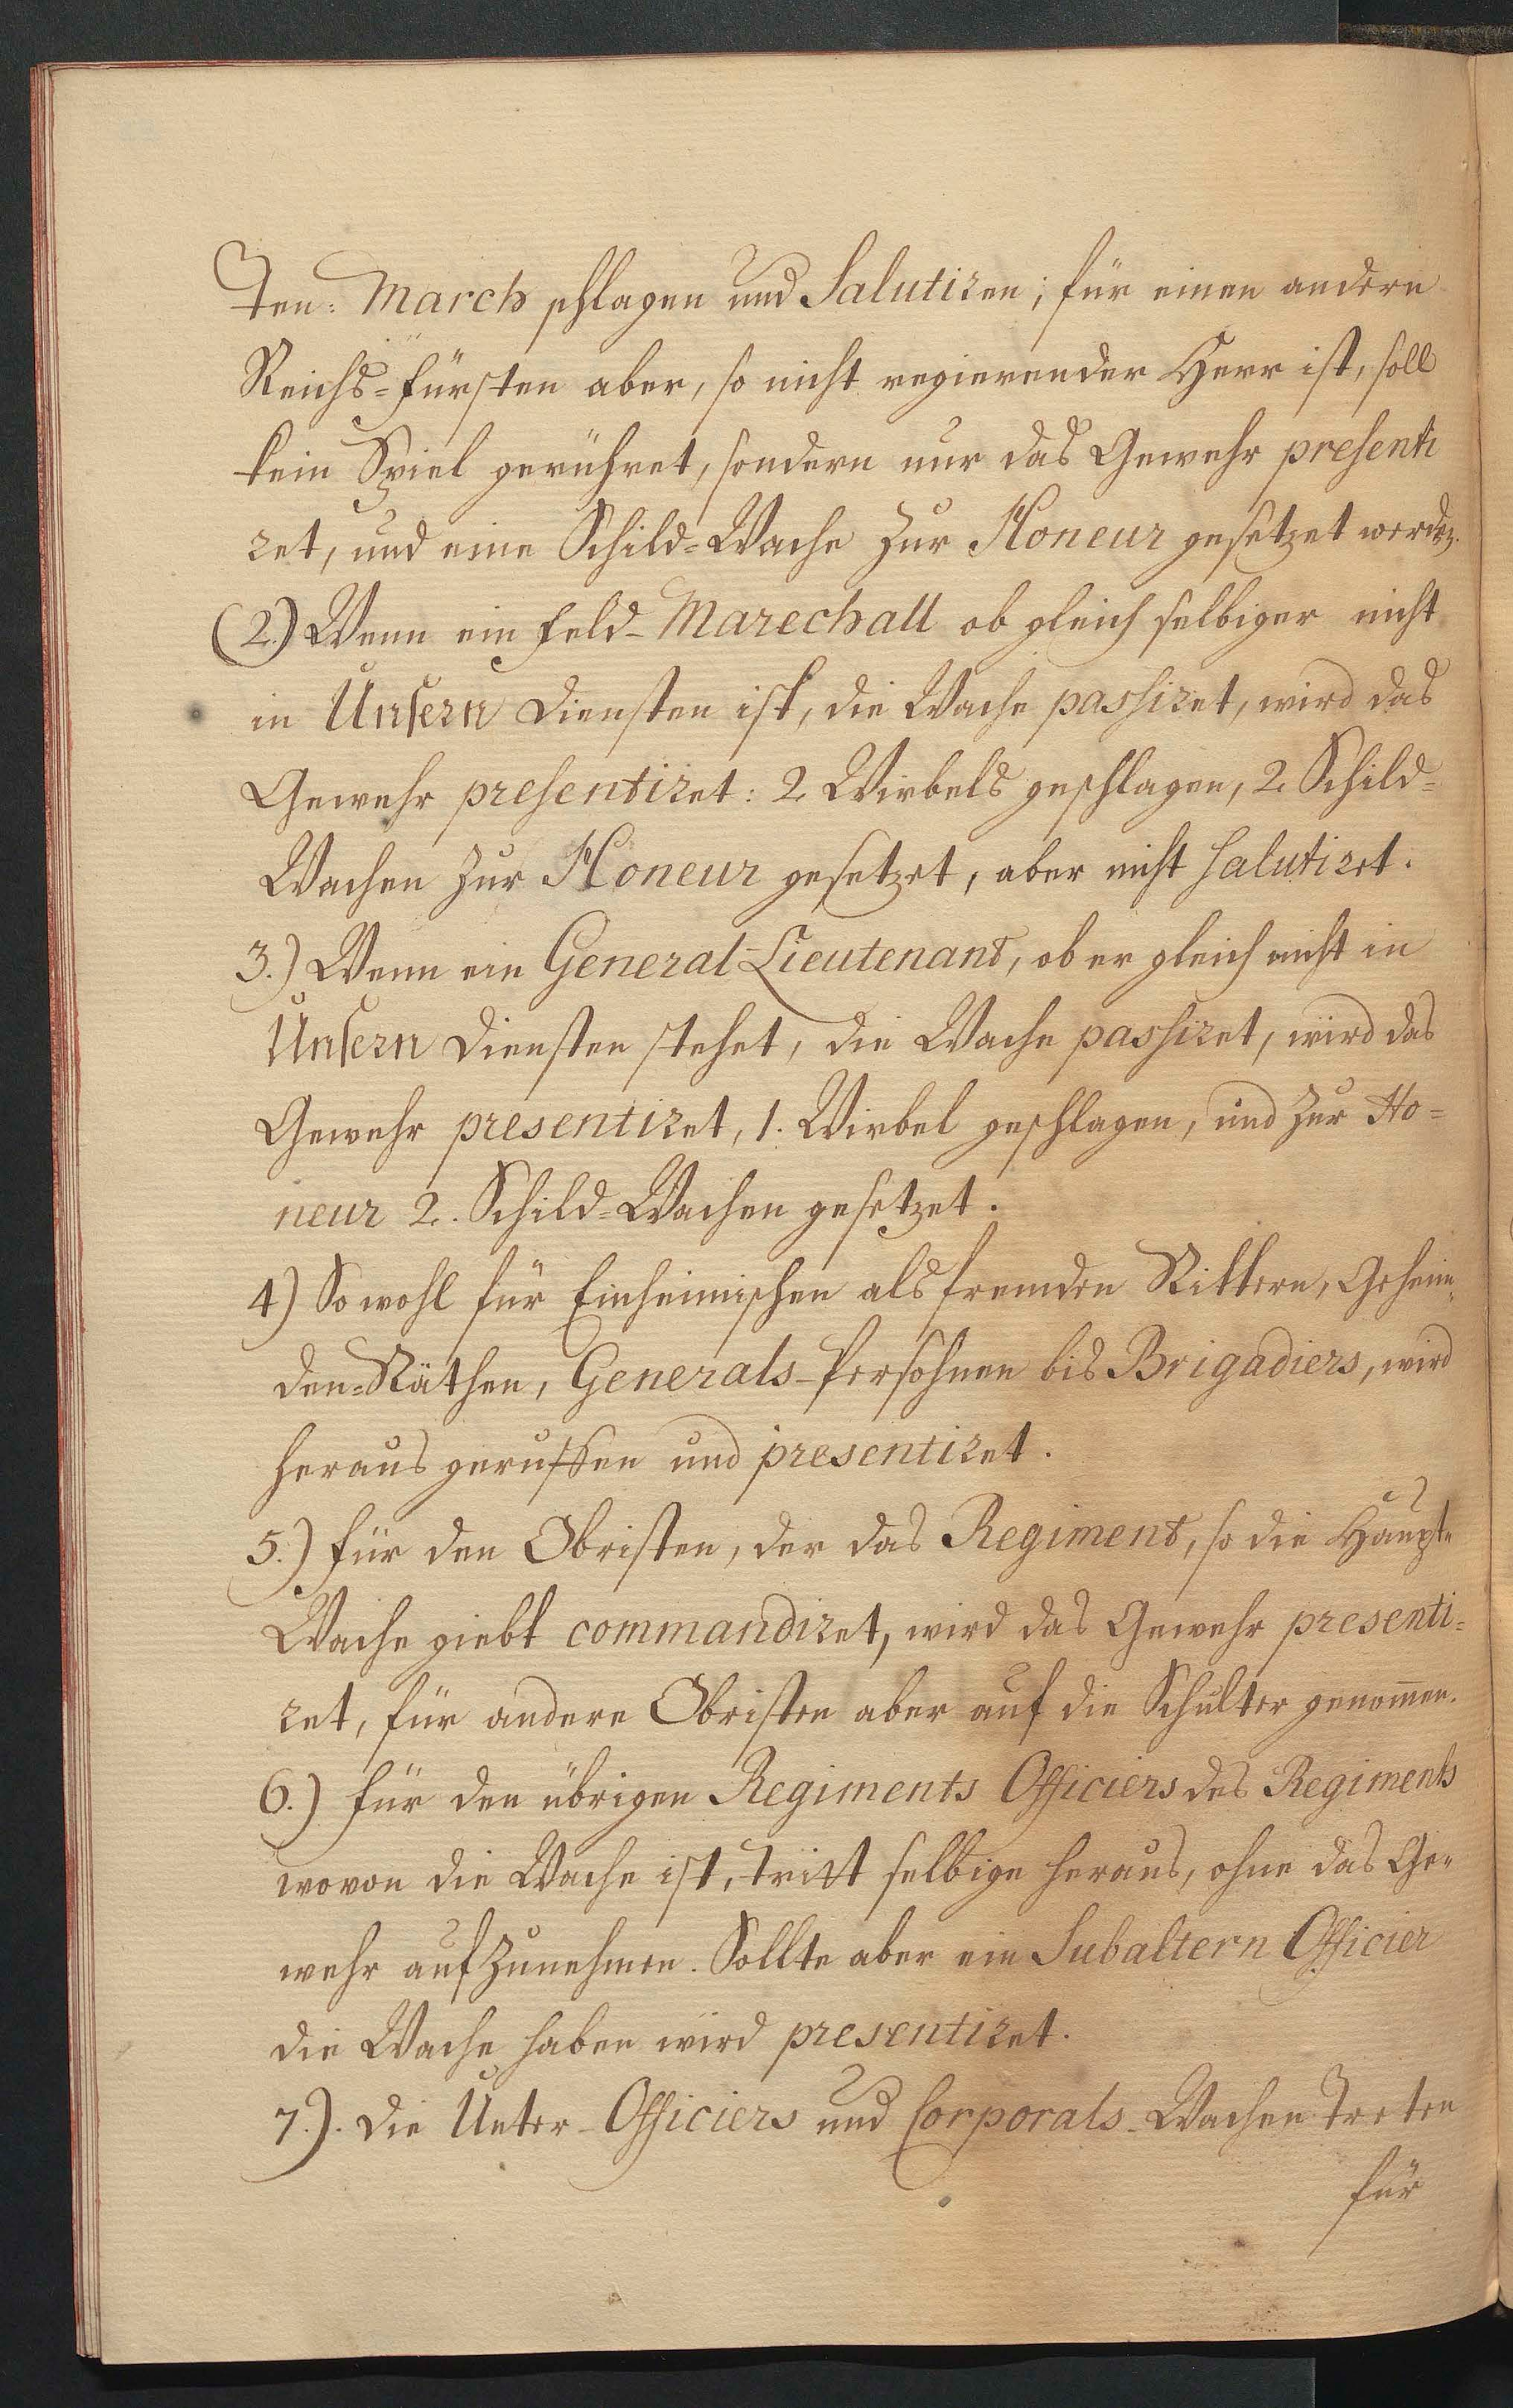 ten: March schlagen und Salutiren; für einen andern
Reichs=Fürsten aber, so nicht regierender Herr ist, soll
kein Spiel gerühret, sondern nur das Gewehr presenti
ret, und eine Schild=Wache zur Honeur gesetzet werden.
(2.) Wenn ein Feld-Marechall ob gleich selbiger nicht
in Unsern Diensten ist, die Wache passiret, wird das
Gewehr presentiret: 2 Wirbels geschlagen, 2. Schild=
Wachen zur Honeur gesetzet, aber nicht salutiret.
3.) Wenn ein General-Lieutenant, ob er gleich nicht in
Unsern Diensten stehet, die Wache passiret, wird das
Gewehr presentiret, 1. Wirbel geschlagen, und zur Ho=
neur 2. Schild=Wachen gesetzet.
4) So wohl für Einheimischen als fremden Rittern, Geheim=
den=Räthen, Generals-Persohnen bis Brigadiers, wird
heraus geruffen und presentiret.
5.) Für den Obristen, der das Regiment, so die Haupt=
Wache giebt commandiret, wird das Gewehr presenti=
ret, für andere Obristen aber auf die Schulter genom̄en.
6.) Für den übrigen Regiments Officiers des Regiments
wovon die Wache ist, tritt selbige heraus, ohne das Ge=
wehr aufzunehmen. Sollte aber ein Subaltern Officier
die Wache haben wird presentiret.
7.). Die Unter-Officiers und Corporals-Wachen treten
für